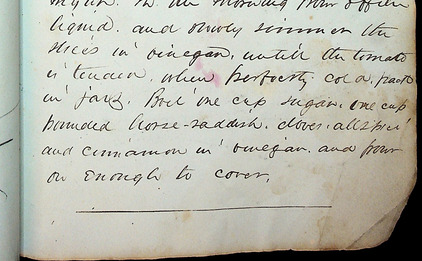 In the morning pour off the
liquid, and slowly simmer the
slices in vinegar, until the tomato
is tender, when perfectly cold, pack
in jars. Boil one cup sugar, one cup
pounded horse-raddish, cloves, allspice
and cinnamon in vinegar, and pour
on enough to cover.